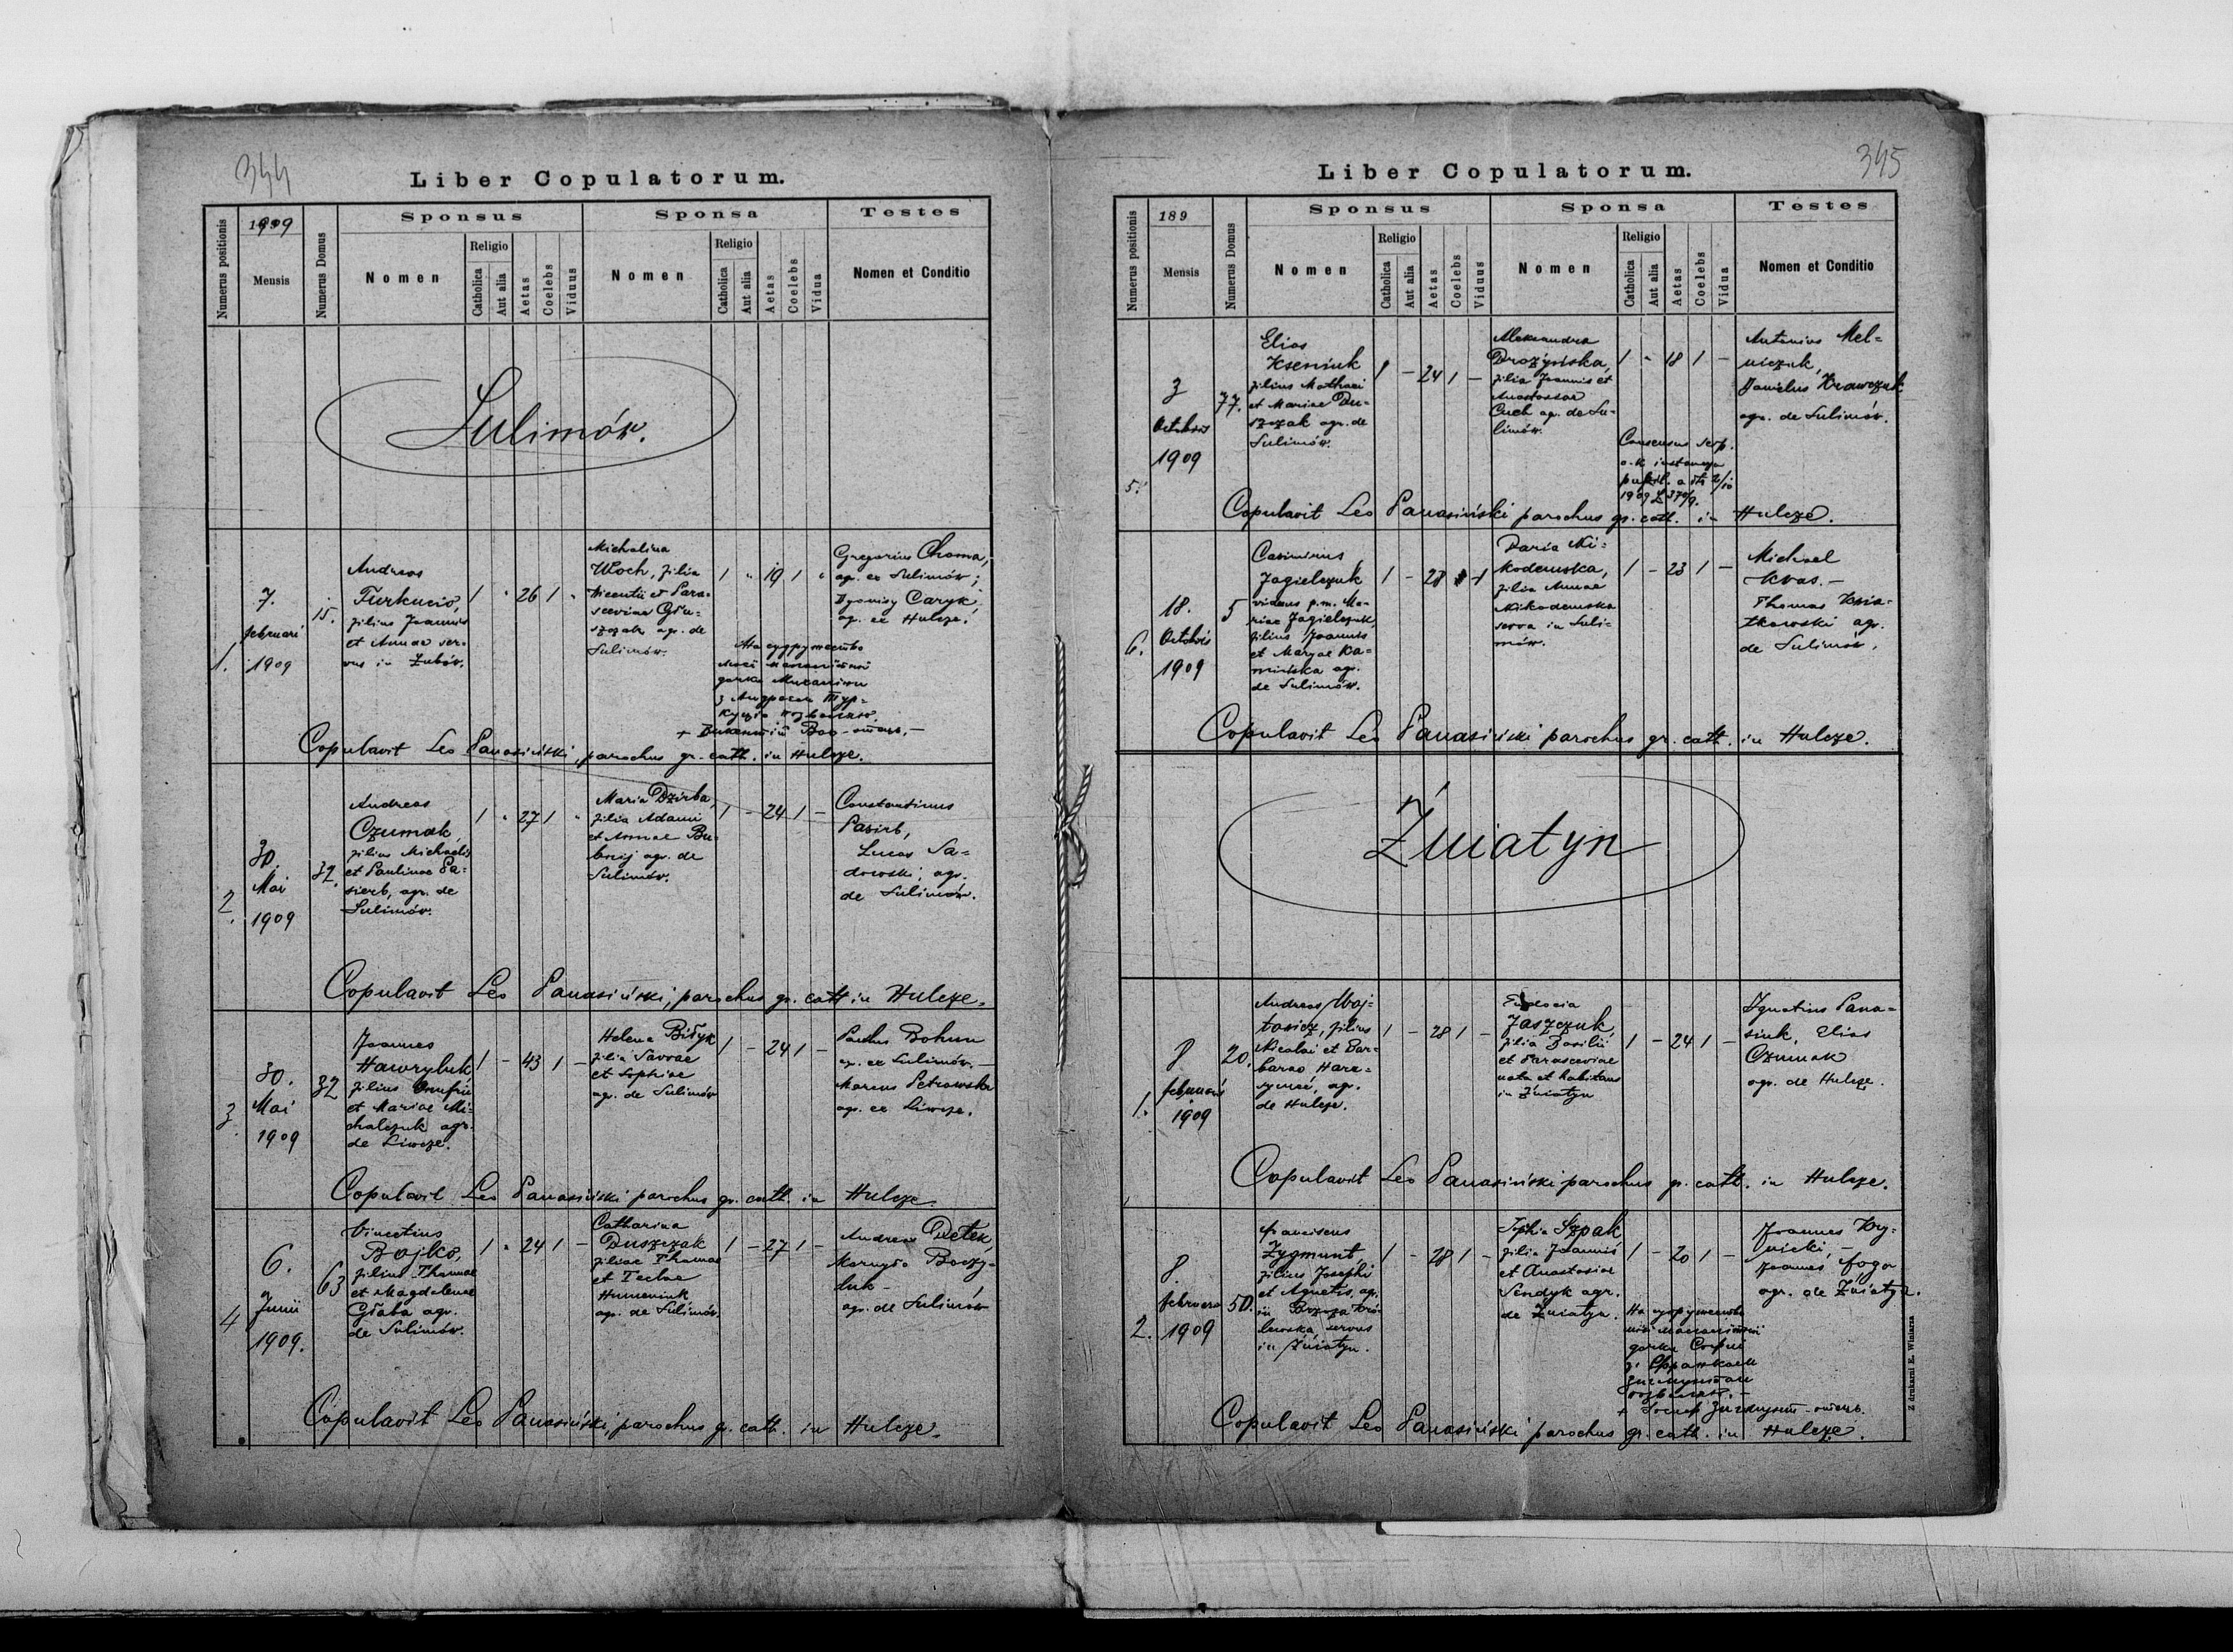 344
Liber Copulatorum.
Numerus positionis
1909
Mensis
Numerus Domus
Sponsus
Nomen
Religio
Catholica
Aut alia
Aetas
Coelebs
Viduus
Sponsa
Nomen
Religio
Catholica
Aut alia
Aetas
Coelebs
Vidua
Testes
Nomen et Conditio
Sulimów.
1.
7.
februari
1909
15.
Andreas
Turkucio,
filius Joannis
et Annae ser-
vus in Żubów.
1 " 26 1 "
Michalina
Włoch, filia
Vicentii et Para-
scevine Głu-
szczak agr. de
Sulimów.
1 " 19 1 "
Gregorius Choma,
ag. ex Sulimów;
Dyonizy Caryk,
ag. ex Hulcze.
На супружество
моєї
з Андреєм Тур-
- отець. -
Copulavit Leo Panasiński, parochus gr. cath. in Hulcze.
2.
30.
Mai
1909
32.
Andreas
Czumak,
filius Michaelis
et Paulinae Pa-
sierb, agr. de
Sulimów.
1 " 27 1 "
Maria Dzirba,
filia Adami
et Annae Bu-
agr. de
Sulimów.
1 - 24 1 -
Constantinus
Pasirb,
Lucas Sa-
dowski, agr.
de Sulimów.
Copulavit Leo Panasiński, parochus gr. cath in Hulcze.
3.
30.
Mai
1909
32
Joannes
Hawryluk
filius Onufrii
et Mariae Mi-
chalczuk agr.
de Liwcze.
1 - 43 1 -
Helena Biłyk
filia Savvae
et Sophiae
ag. de Sulimów
1 - 24 1 -
Paulus Bohun
ag. ex Sulimów. -
Marcus Petrowska
ag. ex Liwcze.
Copulavit Leo Panasiński parochus gr. cath. in Hulcze
4
6.
Junii
1909.
63
Vincetius
Bojko,
filius Thomae
et Magdalenae
Głaba agr.
de Sulimów.
1 " 24 1 -
Catharina
Duszczak
filiae Thomae
et Teclae
Humeniuk
agr. de Sulimów.
1 - 27 1 -
Andreas Detek,
agr. de Sulimów
Copulavit Leo Panasiński, parochus gr. cath. in Hulcze.
345
Liber Copulatorum.
Numerus positionis
189
Mensis
Numerus Domus
Sponsus
Nomen
Religio
Catholica
Aut alia
Aetas
Coelebs
Viduus
Sponsa
Nomen
Religio
Catholica
Aut alia
Aetas
Coelebs
Vidua
Testes
Nomen et Conditio
5.
3
Octobris
1909
77.
Elias
Kseniuk
filius Mathaei
et Mariae Du-
szczak agr. de
Sulimów.
1 - 24 1 -
Aleksandra
Drożyńska,
filia Joannis et
Anastasiae
Cuch ag. de Su-
limów.
1 " 18 1 -
Antonius Mel-
niczuk,
Danielus Krawczuk
agr. de Sulimów.
Consensus
Copulavit Leo Panasiński parochus gr. cath. in Hulcze.
6.
18.
Octobris
1909
5
Casimirus
Jagielczuk
viduus p.m. Ma-
riae Jagielczuk,
filius Joannis
et Maryae Ka-
mińska agr.
de Sulimów.
1 - 28 - 1
Daria Ni-
kodemska,
filia Annae
Nikodemska
serva in Suli-
mów.
1 - 23 1 -
Michael
Kvas. -
Thomas Kwia-
tkowski agr.
de Sulimów.
Copulavit Leo Panasiński parochus gr. cath. in Hulcze.
Żniatyn
1.
8
februarii
1909
20.
Andreas Woj-
towicz, filius
Nicolai et Bar-
barae Hara-
symec, agr.
de Hulcze.
1 - 28 1 -
Eudocia
Jaszczuk,
filia Basilii
et Parasceviae
nata et habitans
in Żniatyn
1 - 24 1 -
Ignatius Pana-
siuk, Elias
Czumak
agr. de Hulcze.
Copulavit Leo Panasiński parochus gr. cath. in Hulcze.
2.
8.
februara
1909
50.
Franciscus
Zygmunt,
filius Josephi
et Agnetis, ag.
in
servus
in Żniatyn.
1 - 28 1 -
Sophia Szpak
filia Joannis
et Anastasiae
Sendyk agr.
de Żniatyn.
1 - 20 1 -
Joannes Kry-
nicki, -
Joannes
agr. de Żniatyn.
На супружество
Софиї
- отець.
Copulavit Leo Panasiński parochus gr. cath. in Hulcze.
Z drukarni E. Winiarza